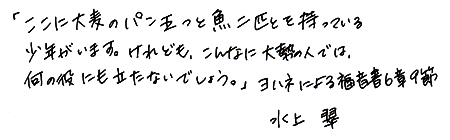 「ここに大麦のパン五つと魚二匹とを持っている
少年がいます。けれども、こんなに大勢の人では、
何の役にも立たないでしょう。」ヨハネによる福音書6章9節
水上 翠